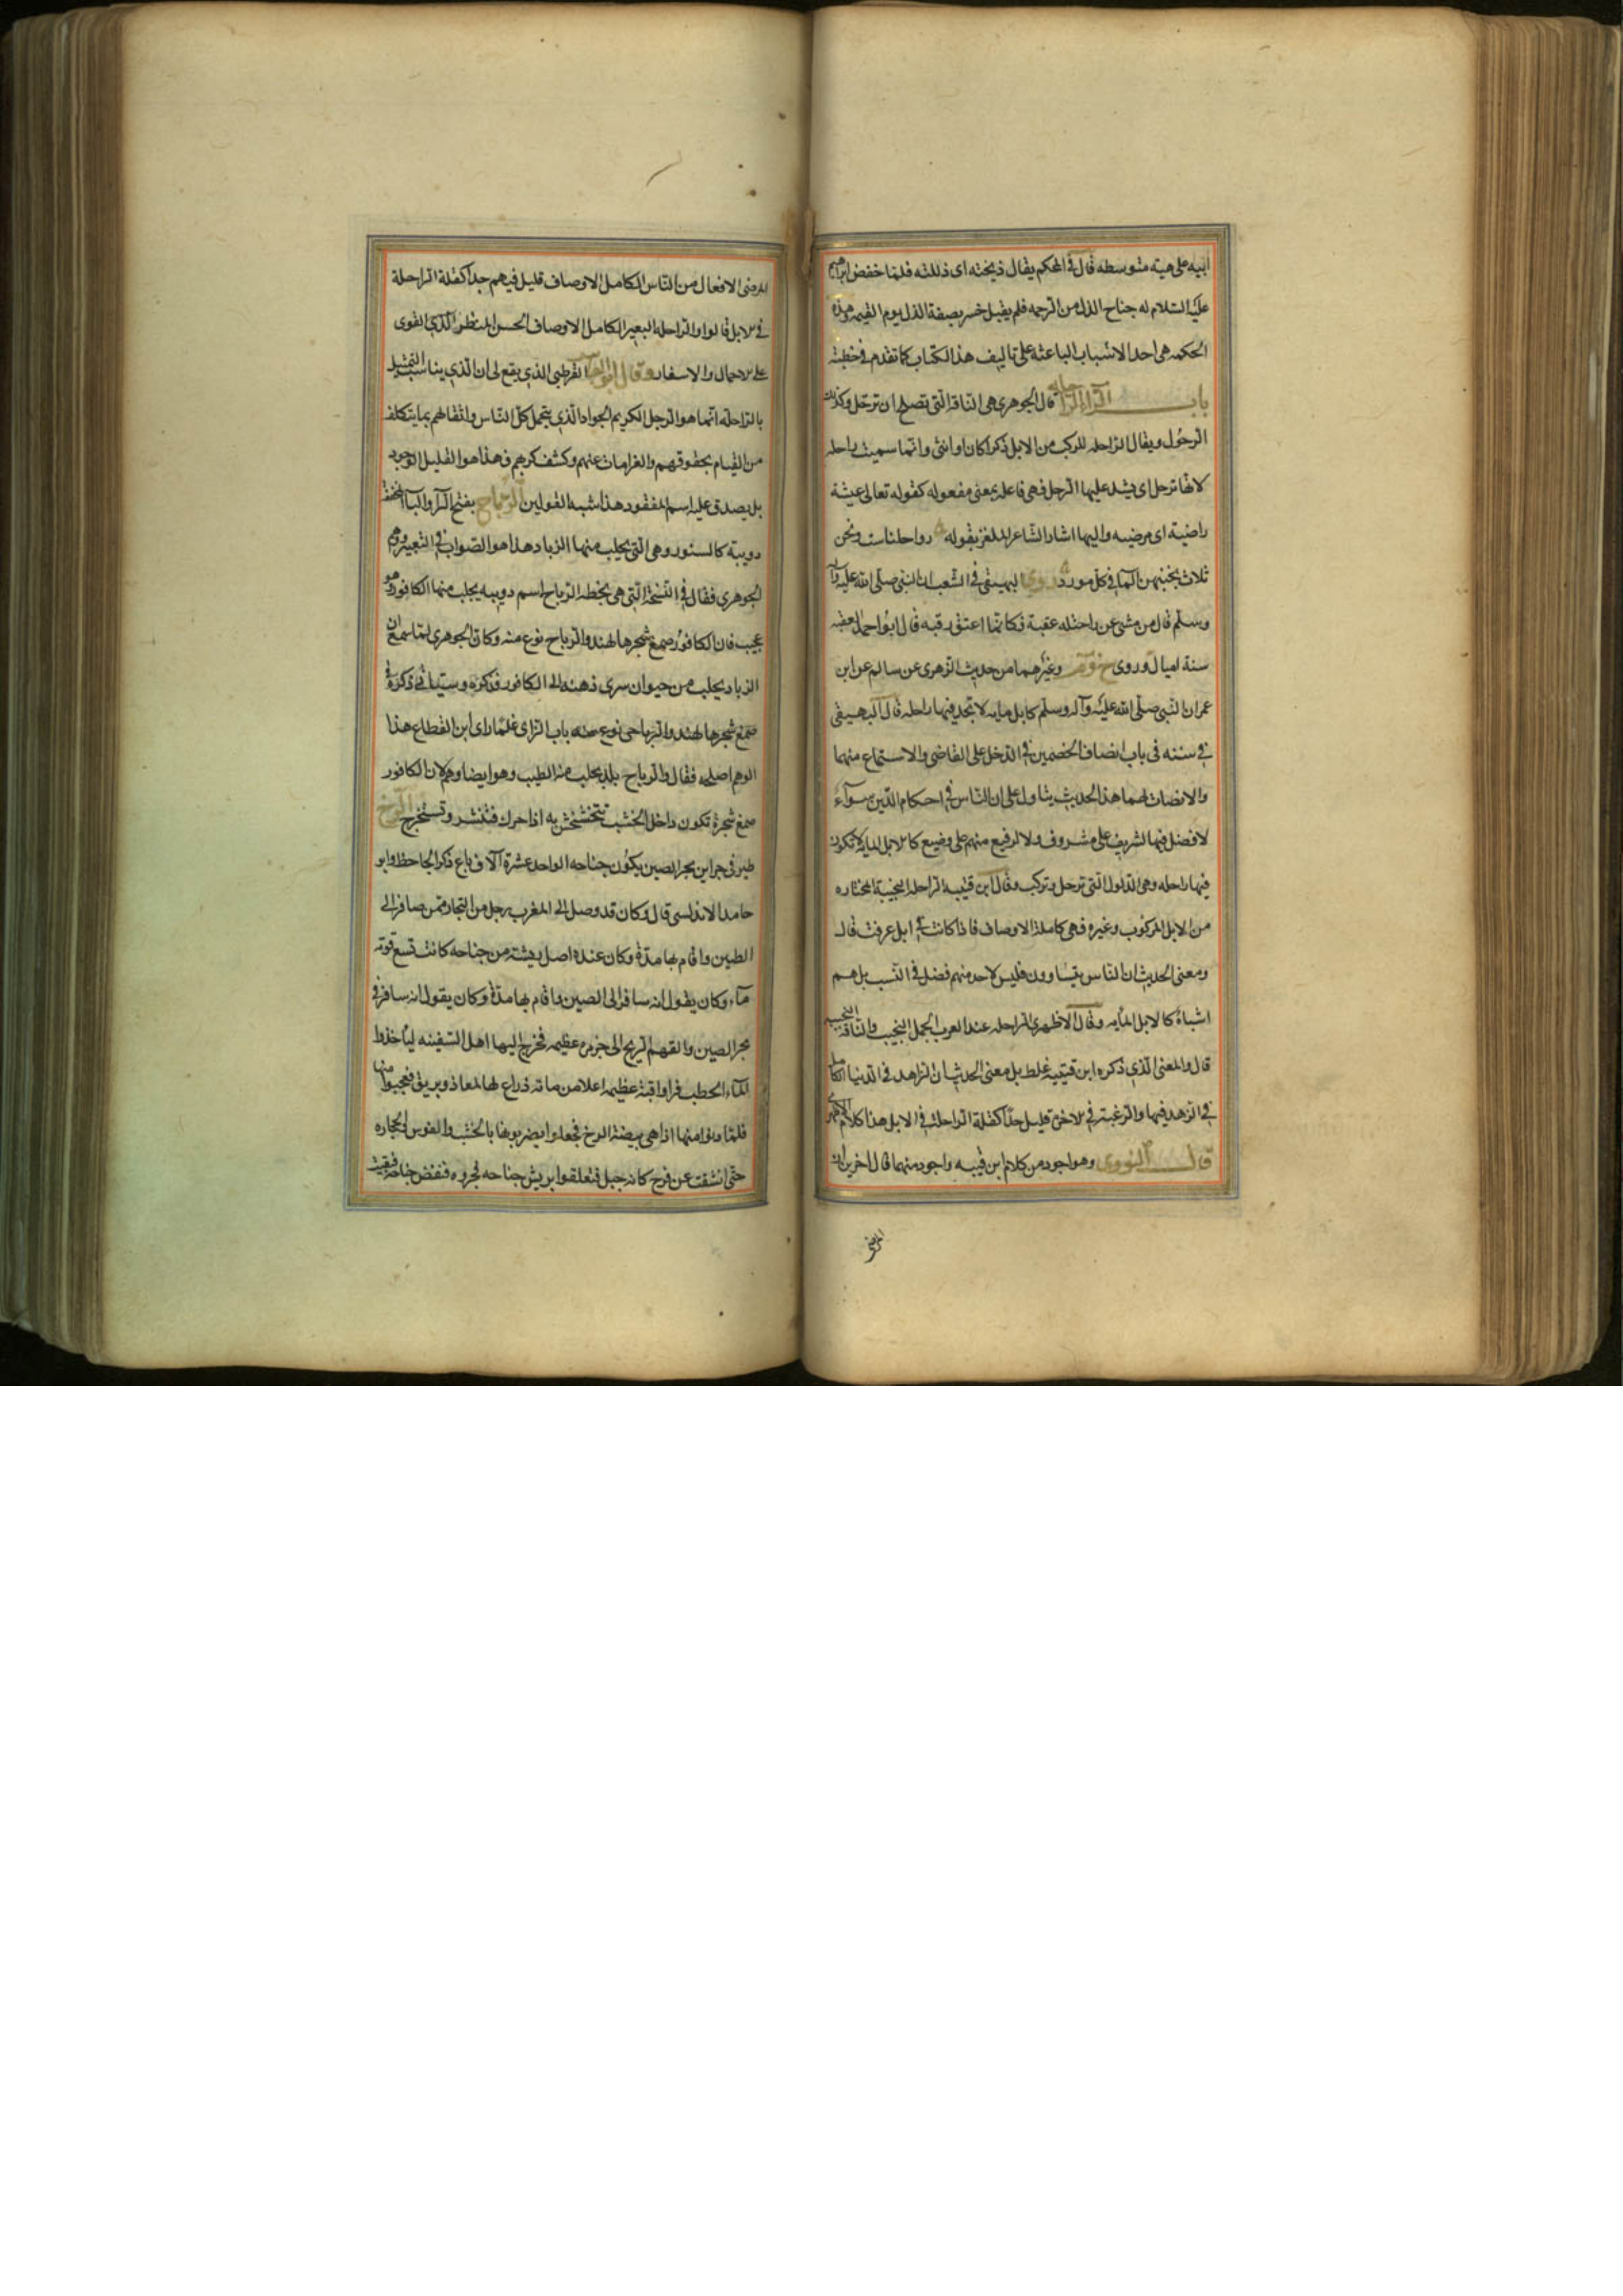 ابيه على هيئة متوسطه قال في المحكم يقال ذيخته اى ذللته فلما خفض ابراهيم
عليه السّلام له جناح الذل من الرحمه فلم يقبل خسر بصفة الذل يوم القيمه وهذه
الحكمه هى احد الاسباب الباعثه على تاليف هذا الكتاب كما تقدم فى خطبته
باب الرآء الراحله قال الجوهرى هى الناقه الّتى تصلح ان ترحّل وكذلك
الرحُول ويقال الراحله المركب من الابل ذكرا كان او انثى وانّما سميت راحله
لانها ترحل اى يشد عليها الرحل فهى فاعله بمعنى مفعوله كقوله تعالى عيشة
راضية اى مرضيه واليها اشار الشاعر الملغز بقوله رواحلنا ست ونحن
ثلاث نجنبهن المآء فى كل مورد روى البيهقى فى الشعب ان النبى صلّى الله عليه وآله
وسلّم قال من مشى عن راحلته عقبة فكانّما اعتق رقبه قال ابو احمد العقبه
ستة اميال وروى خ و م وغيرهما من حديث الزهرى عن سالم عن ابن
عمر ان النبى صلّى الله عليه وآله وسلّم كابل مايه لا تجد فيها راحله قال البيهقى
فى سننه فى باب انصاف الخصمين فى الدخل على القاضى والاستماع منهما
والانصات لهما هذا الحديث يتاول على ان النّاس فى احكام الدّين سوآء
لا فضل فيها لشريف على مشروف ولا لرفيع منهم على وضيع كالابل المايه لا تكون
فيها راحله وهى الذلول الّتى ترحل وتركب وقال ابن قتيبه الراحله النجيبة المختاره
من الابل للركوب وغيره فهى كاملة الاوصاف فاذا كانت فى ابل عرفت قال
ومعنى الحديث ان النّاس يتساوون فليس لاحد منهم فضل فى النّسب بل هم
اشباه كالابل المأيه وقال الازهرى الراحله عند العرب الجمل النجيب والناقة النجيبه
قال والمعنى الّذى ذكره ابن قتيبه غلط بل معنى الحديث ان الزاهد فى الدنيا الكامل
فى الزهد فيها والرغبة فى الاخرة قليل جدّا كقلة الراحلة فى الابل هذا كلام الازهرى
قال النووى وهو اجود من كلام ابن قتيبه واجود منهما قال اخرين ان
المرضى
المرضى الافعال من النّاس الكامل الاوصاف قليل فيهم جدا كقلة الراحلة
فى الابل قالوا والراحله البعير الكامل الاوصاف الحسن المنظر الّذى القوى
على الاحمال والاسفار وقال ابو العباس القرطبى الّذى يقع لى ان الّذى يناسب التمثيل
بالراحله انّما هو الرجل الكريم الجواد الّذى يتحمل كل النّاس واثقالهم بما يتكلف
من القيام بحقوقهم والغرامات عنهم وكشف كربهم فهذا هو القليل الوجود
بل يصدق عليه اسم المفقود هذا اشبه القولين الرباح بفتح الرآ والبآ المخففه
دويبة كالسنور وهى التى يحلب منها الزباد هذا هو الصواب فى التعبير ووهم
الجوهرى فقال فى النّسخة الّتى هى بخطه الرباح اسم دويبه يجلب منها الكافور وهو
عجيب فان الكافور صمغ شجر بالهند والرباح نوع منه وكان الجوهرى لما سمع ان
الزباد يحلب من حيوان سرى ذهنه الى الكافور فذكره وسيأتى ذكره فى
صمغ شجر بالهند والرباحى نوع منه باب الزاى فلمّا راى ابن القطاع هذا
الوهم اصلحه فقال والرباح بلد يجلب منه الطيب وهو ايضا وهم لان الكافور
صمغ شجرة تكون داخل الخشب تتخشخش به اذا حرك فتنشر وتستخرج الرخ
طير فى جزاير بحر الصين يكون جناحه الواحد عشرة آلاف باع ذكره الجاحظ وابو
حامد الاندلسى قال وكان قد وصل الى المغرب رجل من التجار ممن سافر الى
الصين واقام بها مدّة وكان عنده اصل ريشة من جناحه كانت تسع قربة
مآء وكان يقول انه سافر الى الصين واقام بها مدّة وكان يقول انه سافر فى
بحر الصين والقتهم الريح الى جزيره عظيمه فخرج اليها اهل السّفينه ليأخذوا
المآء والحطب فراوا قبّة عظيمه اعلا من مائه ذراع لها لمعان وبريق فعجبوا منها
فلمّا دنوا منها اذا هى بيضة الرخ فجعلوا يضربونها بالخشب والفوس والحجاره
حتّى انشقت عن فرخ كانه جبل فتعلقوا بريش جناحه فجروه فنفض جناحه فبقيت